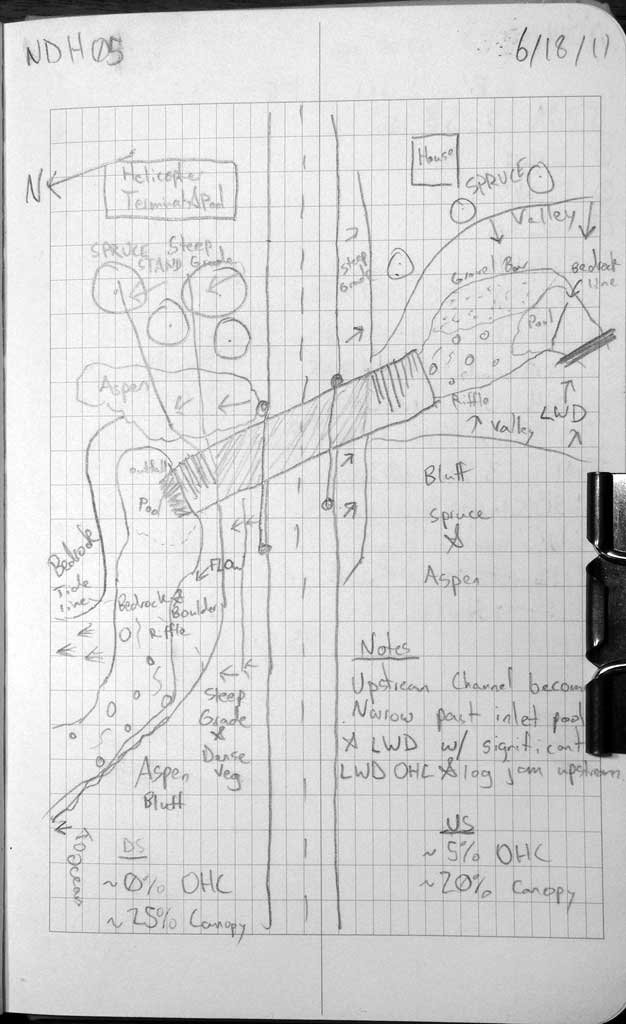 NDH05
6/18/17
N
Helicopter
Terminal & Pad
House
SPRUCE
Valley
SPRUCE
STAND
Steep
Grade
Steep
Grade
Gravel Bar
Bedrock
line
Pool
Aspen
Riffle
LWD
Valley
outfall
Pool
Bluff
Spruce
&
Aspen
Bedrock
Tide
line
Flow
Bedrock &
Boulder
Riffle
Notes
Upstream Channel becom
Narrow past inlet pool
& LWD w/ significant
LWD OHC & log jam upstream
Steep
Grade
&
Dense
Veg
Aspen
Bluff
To Ocean
DS
~0% OHC
~25% Canopy
US
~5% OHC
~20% Canopy